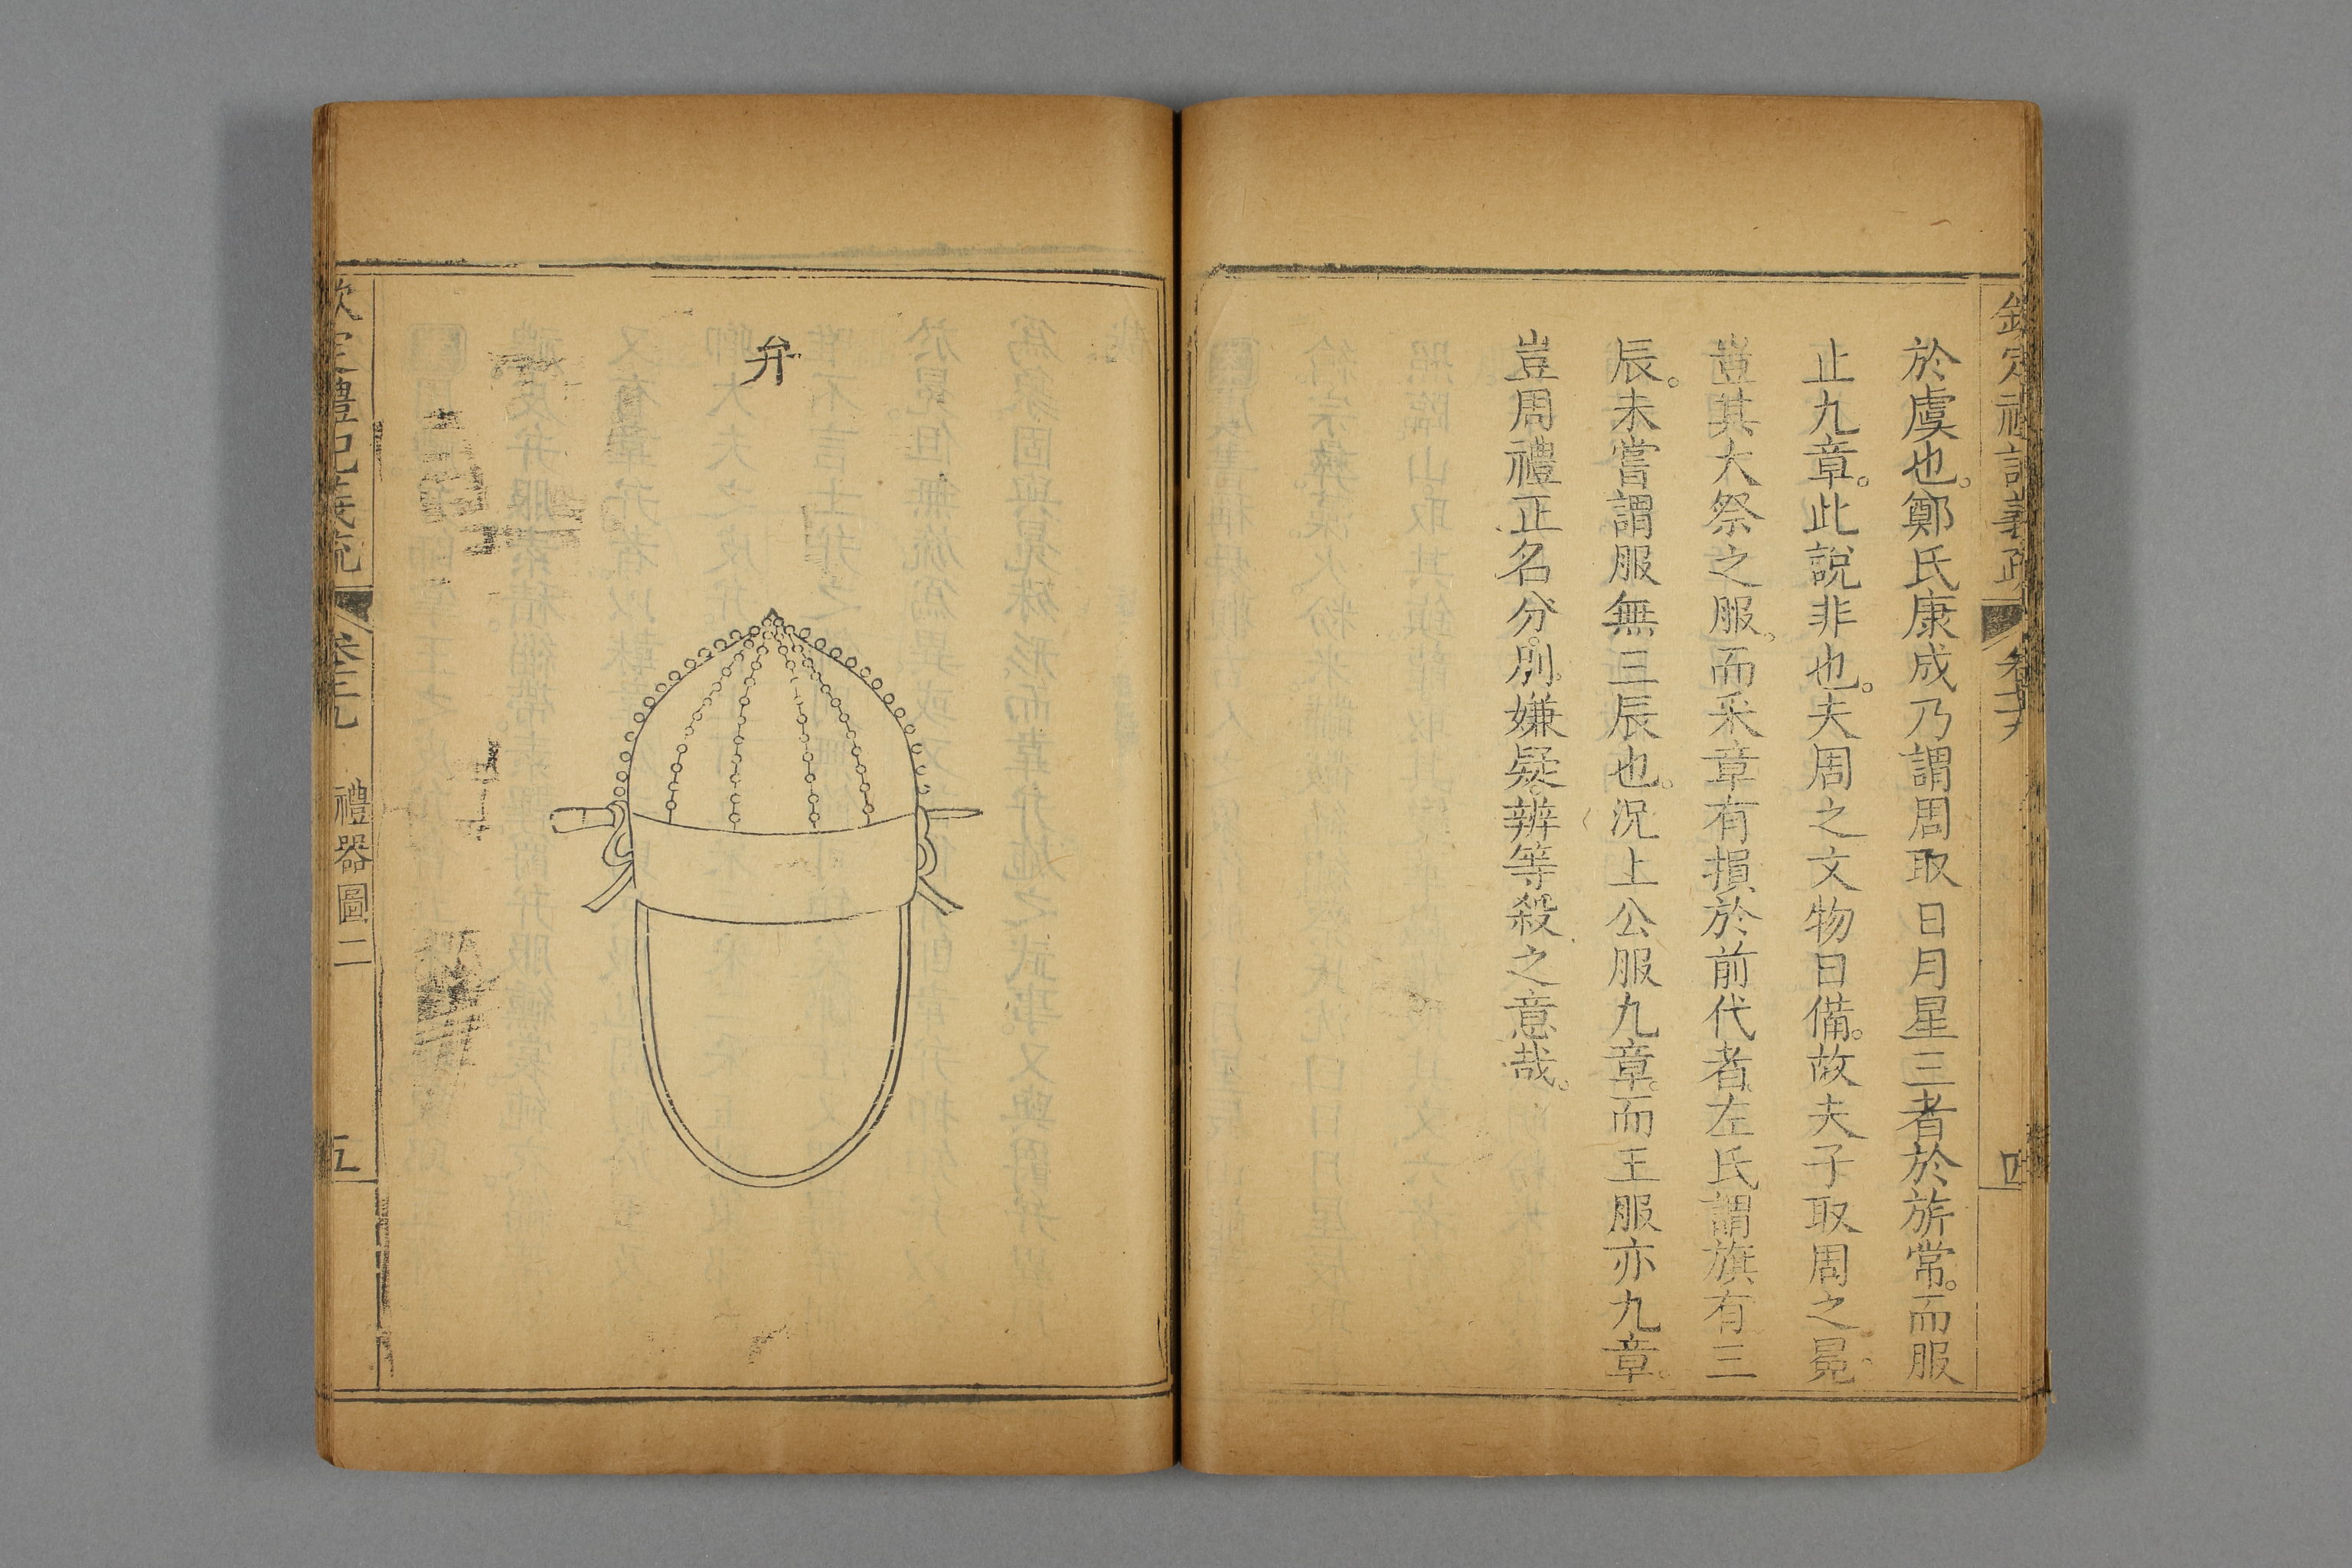 於虞也。鄭氏康成乃謂周取日月星三者於旂常。而服
止九章。此說非也。夫周之文物日備。故夫子取周之冕。
豈其大祭之服。而采章有損於前代者。左氏謂旗有三
辰。未嘗謂服無三辰也。況上公服九章。而王服亦九章。
豈周禮正名分。別嫌疑。辨等殺之意哉。
四
弁
欽定禮記義疏
禮器圖二
五